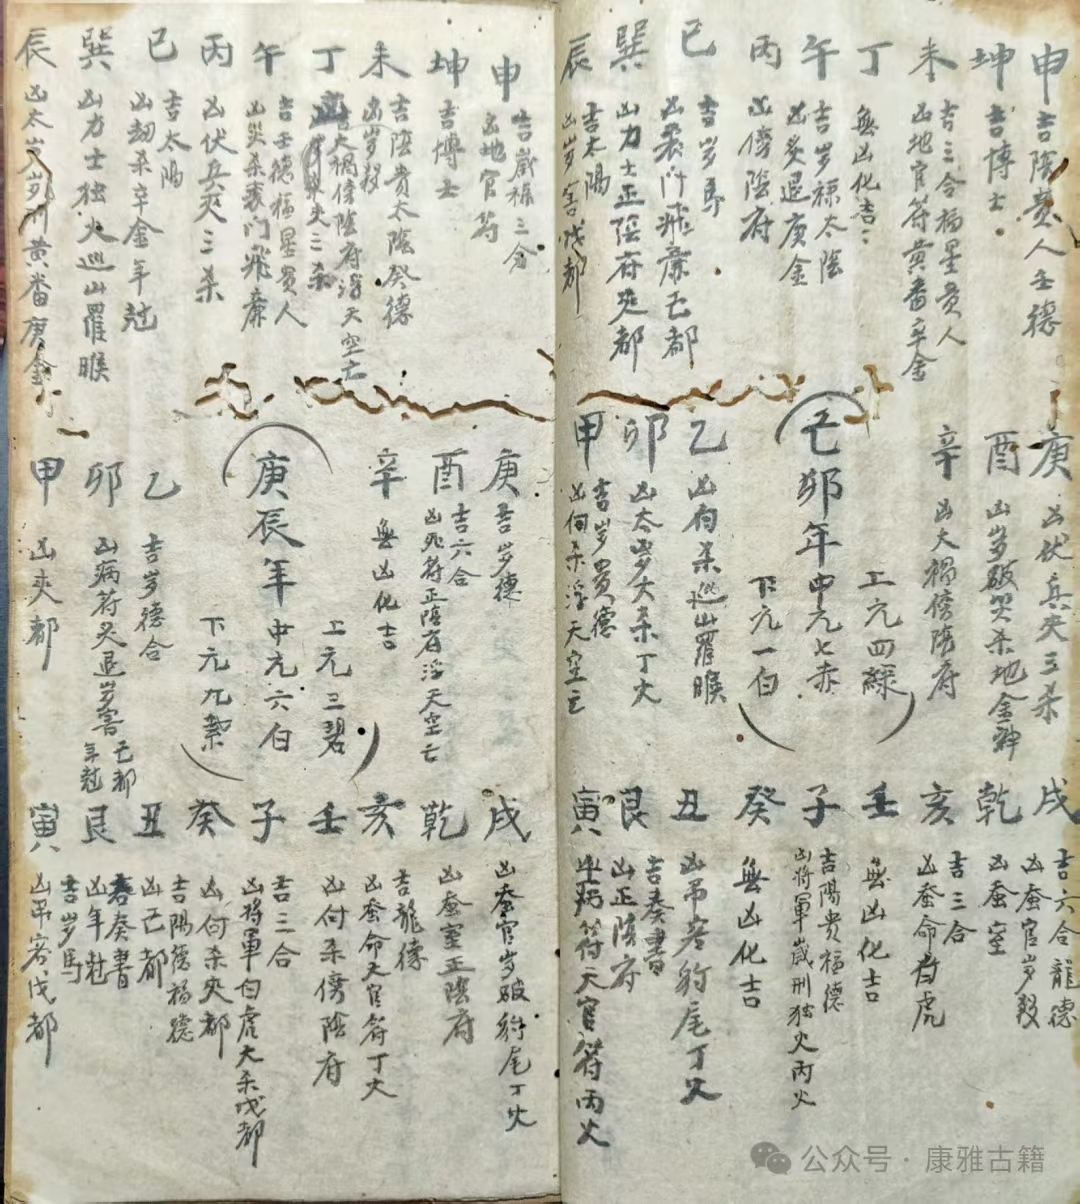 申 吉陰貴人壬德
坤 吉博士
未 吉三合福星貴人
凶地官符黄番辛金
丁 無凶化吉
午 吉岁禄太陰
凶炙退庚金
丙 凶傍陰府
巳 吉岁馬
凶丧門飛廉己都
巽 凶力士正陰府夾都
辰 吉太陽
凶岁害戊都
庚 凶伏兵夾三杀
酉 凶岁破災杀地金神
辛 凶天禍傍陰府
己卯年
上元四綠
中元七赤
下元一白
乙 凶向杀巡山羅睺
卯 凶太岁大杀丁火
甲 吉岁貴德
凶向杀浮天空亡
戌 吉六合龍德
凶蚕官岁殺
乾 凶蚕室
亥 吉三合
凶蚕命白虎
壬 無凶化吉
子 吉陽貴福德
凶將軍歲刑独火丙火
癸 無凶化吉
丑 凶吊客豹尾丁火
艮 吉奏書
凶正陰府
寅 凶病符天官符丙火
申 吉歲禄三合
凶地官符
坤 吉博士
未 吉陰貴太陰癸德
凶岁殺
丁 凶天禍傍陰府浮天空亡
午 吉壬德福星貴人
凶災杀丧門飛廉
丙 凶伏兵夾三杀
巳 吉太陽
凶劫杀辛金年尅
巽 凶力士独火巡山羅睺
辰 凶太岁岁刑黄番庚金
庚 吉岁德
酉 吉六合
凶死符正陰府浮天空亡
辛 無凶化吉
庚辰年
上元三碧
中元六白
下元九紫
乙 吉岁德合
卯 凶病符炙退岁害
己都
年尅
甲 凶夾都
戌 凶蚕官岁破豹尾丁火
乾 凶蚕室正陰府
亥 吉龍德
凶蚕命天官符丁火
壬 凶向杀傍陰府
子 吉三合
凶將軍白虎大杀戊都
癸 凶向杀夾都
丑 吉陽德福德
凶己都
艮 吉奏書
凶年尅
寅 吉岁馬
凶吊客戊都
公众号·康雅古籍